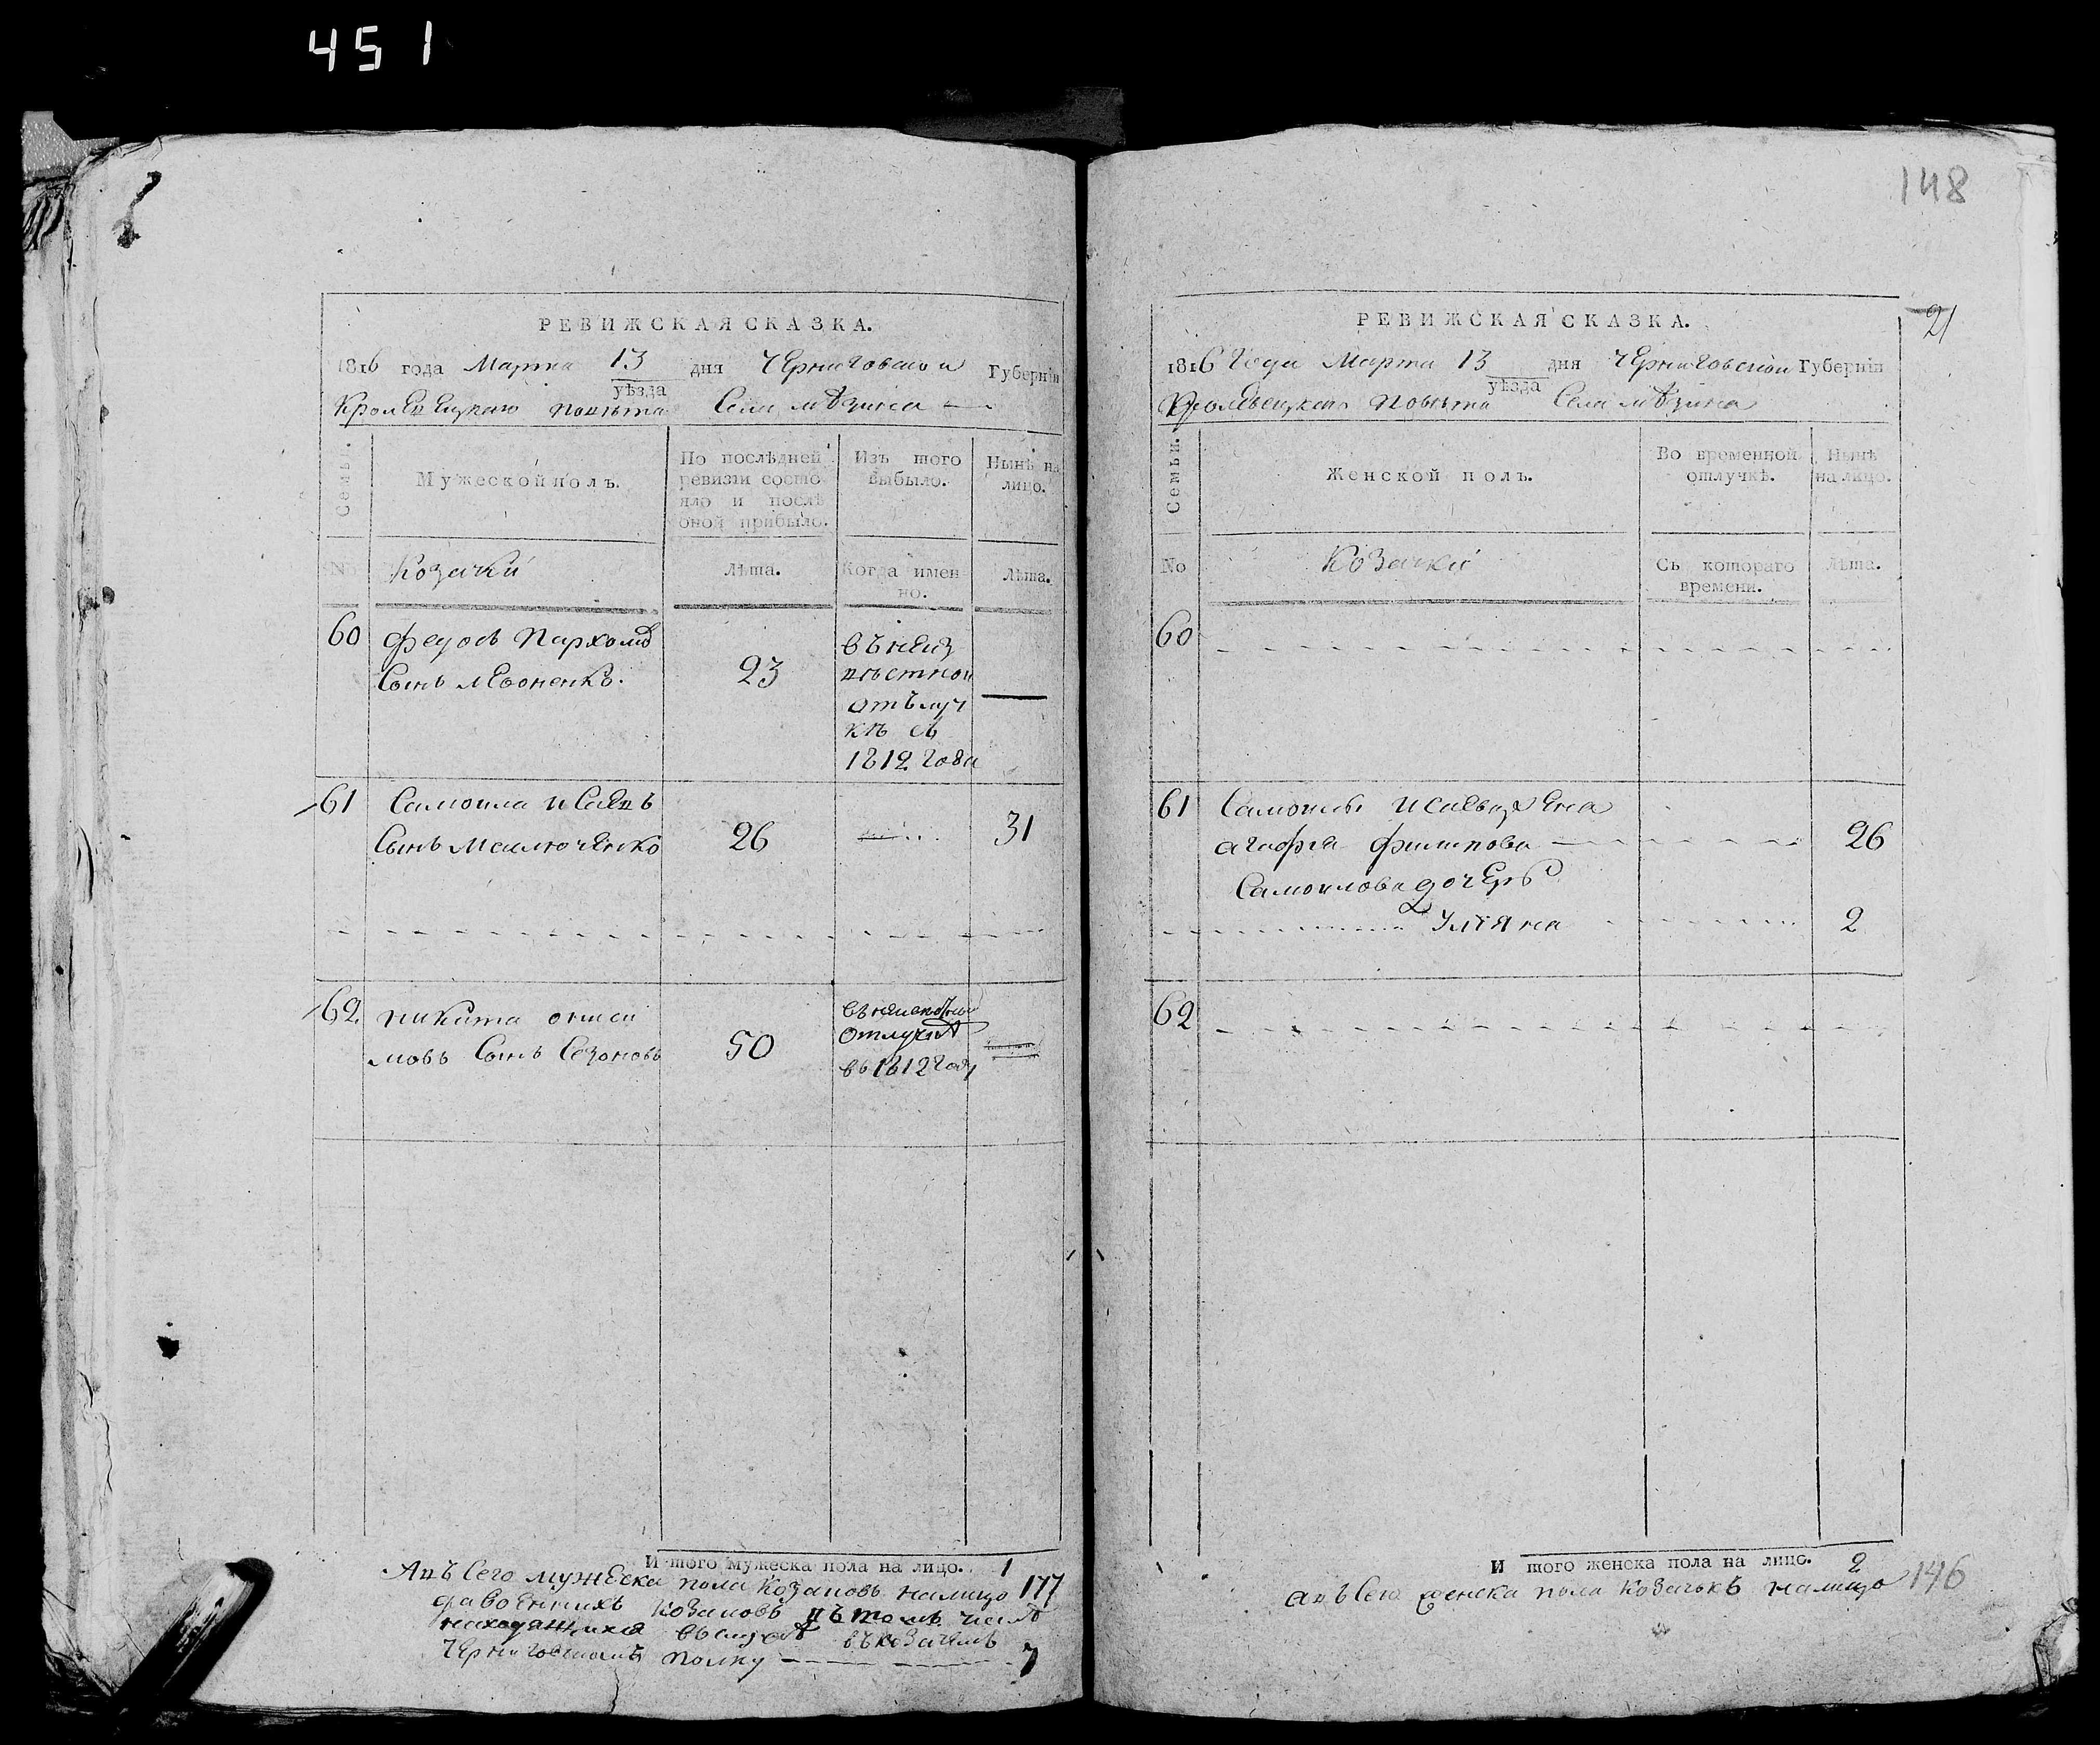 451
РЕВИЖСКАЯ СКАЗКА.
1816 года Марта 13 дня Черниговской Губерніи
уѣзда
Кролевецкаго повѣта Села Мѣзина
Семьи.
Мужеской полъ.
По послѣдней ревизіи состояло и послѣ оной прибыло.
Изъ того выбыло.
Нынѣ на лицо.
No
Козаки
Лѣта.
Когда именно.
Лѣта.
60 Федоръ Пархомов
сынъ
23
въ неиз
вѣстной
отълуч
кѣ съ
1812 года
61 Самоила Исаевъ
сынъ
26
31
62 Никита Ониси
мовъ сынъ Сезоновъ
50
отлучкѣ
въ 1812 году
Итого мужеска пола на лицо. 1
А въсего мужеска пола козаковъ налицо 177
козаковъ въ томъ числѣ
находящихся въ козачемъ
Черниговскомъ полку 7
148
21
РЕВИЖСКАЯ СКАЗКА.
1816 Года Марта 13 дня Черниговской Губерніи
уѣзда
Кролевецкаго повѣта Села Мѣзина
Семьи.
Женской полъ.
Во временной отлучкѣ.
Нынѣ на лицо.
No
Козачки
Съ котораго времени.
Лѣта.
60
61 Самоилы Исаева жена
Агафия Филипова 26
Самоилова дочерь
Улияна 2
62
Итого женска пола на лицо. 2
А въсего женска пола козачькъ налицо 146